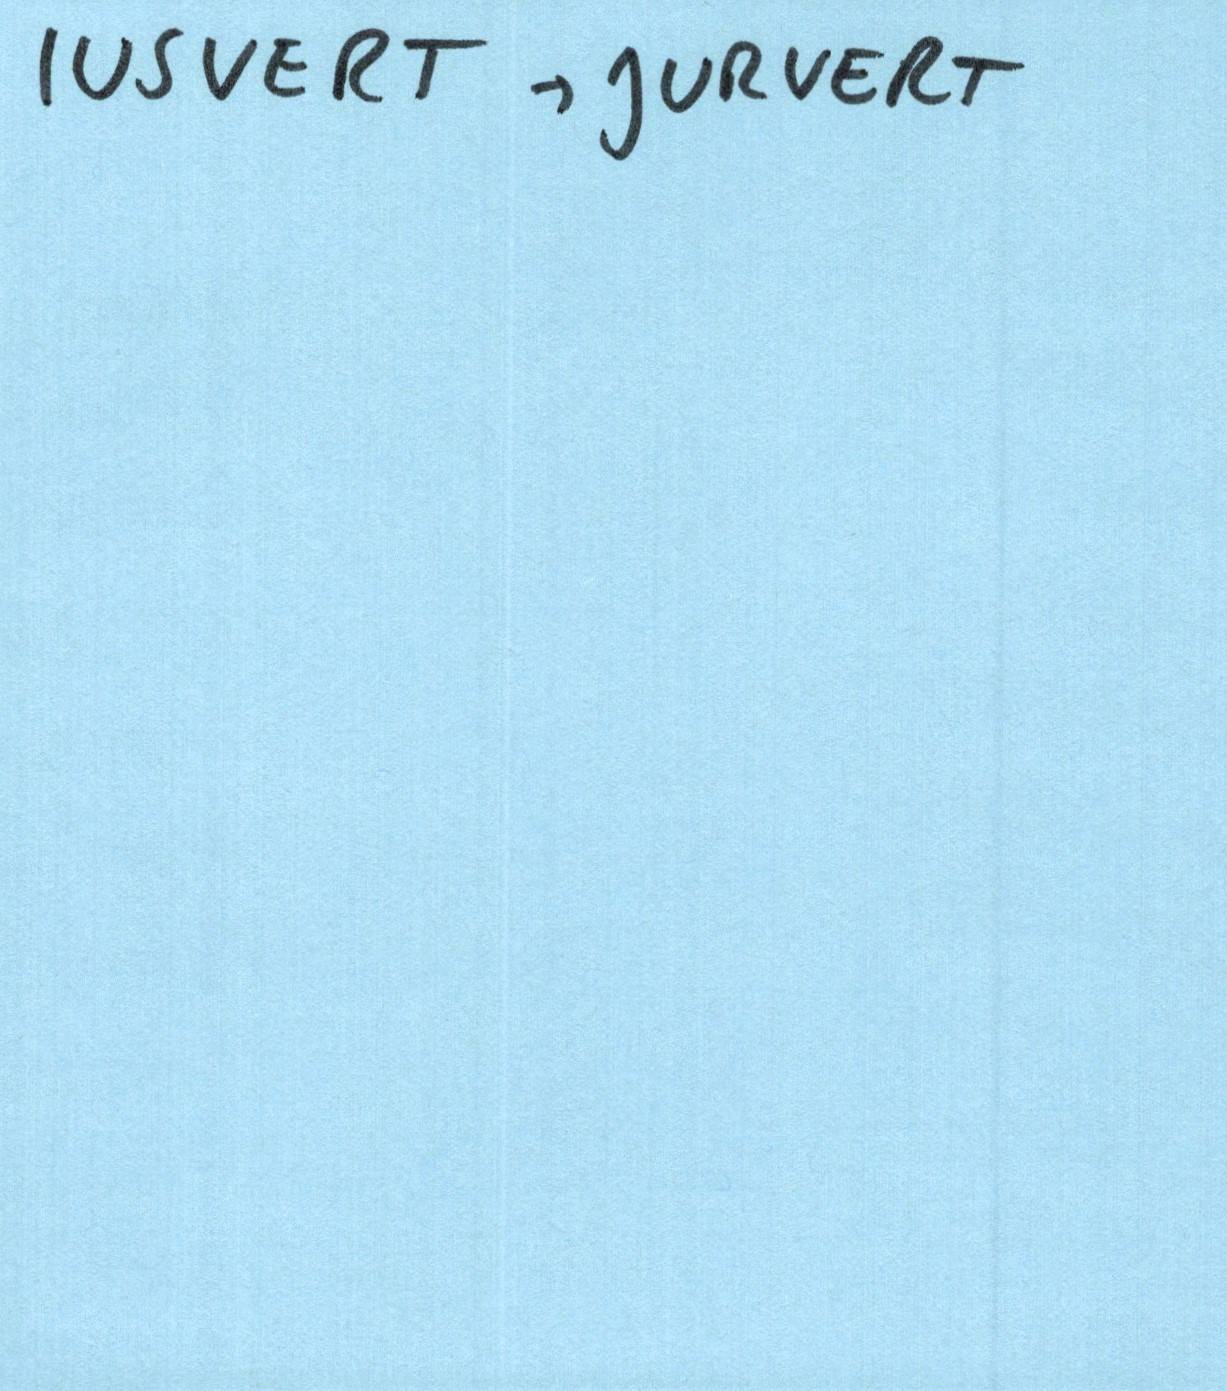 IUSVERT → JURVERT